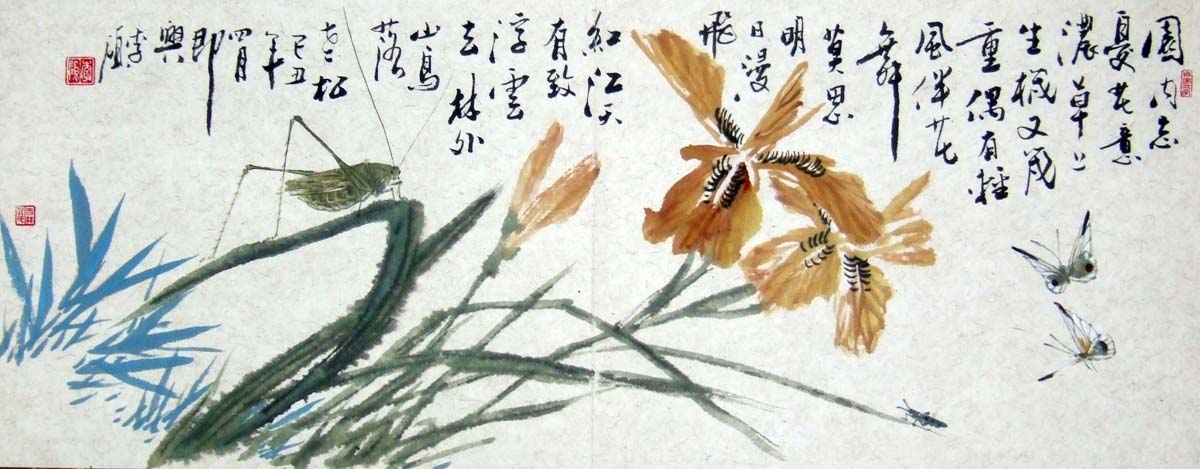 園內忘
憂花意
濃草
生機又茂
重偶有輕
風伴花
舞
莫思
明
日漫
飛
紅江天
有致
浮雲
去林外
山鳥
落
松
己丑
年
四月
即
興
李